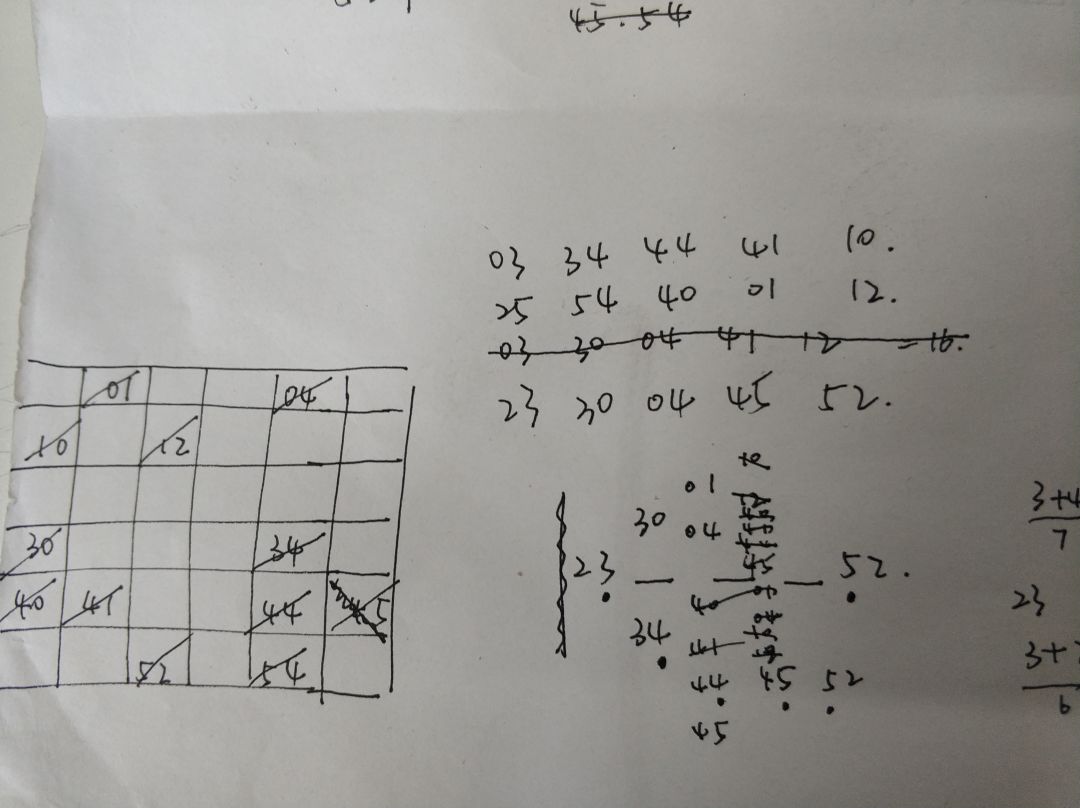 45.54
03 34 44 41 10.
25 54 40 01 12.
03 30 04 41 12 - 10.
23 30 04 45 52.
01 04
10 12
30 34
40 41 44 45
52 54
01
30 04
45
23 — — — 52.
40
34 41
44 45 52
45
3+4
7
23
3+
6